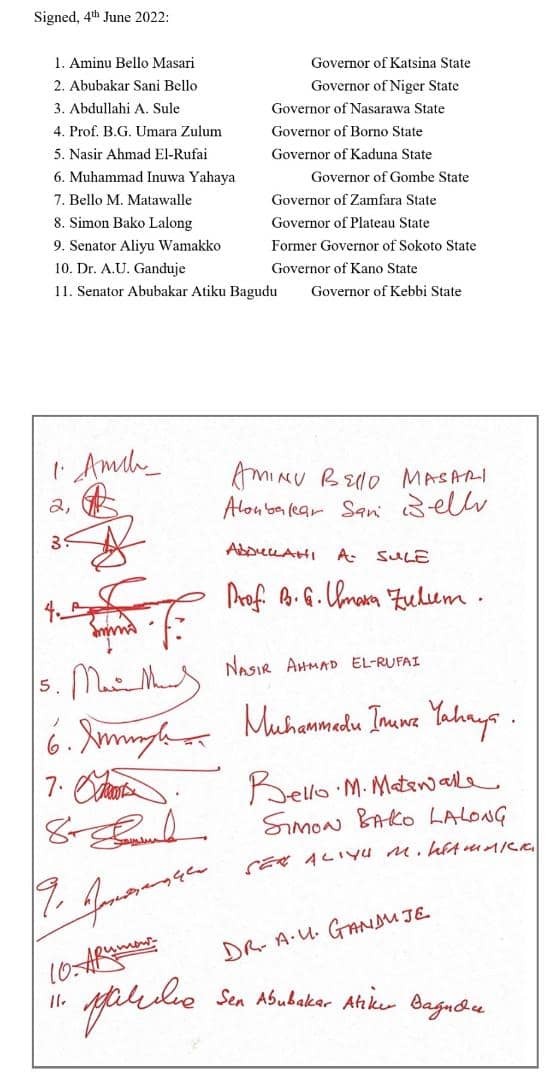 Signed, 4th June 2022:
1. Aminu Bello Masari Governor of Katsina State
2. Abubakar Sani Bello Governor of Niger State
3. Abdullahi A. Sule Governor of Nasarawa State
4. Prof. B.G. Umara Zulum Governor of Borno State
5. Nasir Ahmad El-Rufai Governor of Kaduna State
6. Muhammad Inuwa Yahaya Governor of Gombe State
7. Bello M. Matawalle Governor of Zamfara State
8. Simon Bako Lalong Governor of Plateau State
9. Senator Aliyu Wamakko Former Governor of Sokoto State
10. Dr. A.U. Ganduje Governor of Kano State
11. Senator Abubakar Atiku Bagudu Governor of Kebbi State
1. AMINU BELLO MASARI
2, Abubakar Sani Bello
3. ABDULLAHI A. SULE
4. Prof. B.G. Umara Zulum.
5. NASIR AHMAD EL-RUFAI
6. Muhammadu Inuwa Yahaya.
7. Bello.M.Matawalle
8. SIMON BAKO LALONG
9. SEN ALIYU M.
10. DR. A.U. GANDUJE
11. Sen Abubakar Atiku Bagudu